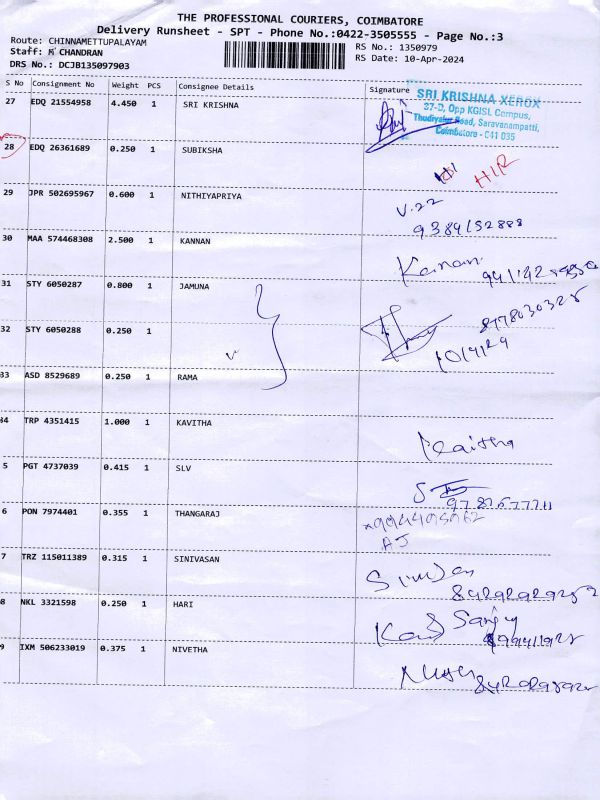 THE PROFESSIONAL COURIERS, COIMBATORE
Delivery Runsheet - SPT - Phone No.:0422-3505555 - Page No.:3
Route: CHINNAMETTUPALAYAM
RS No.: 1350979
Staff: M CHANDRAN
RS Date: 10-Apr-2024
DRS No.: DCJB135097903
S No Consignment No Weight PCS Consignee Details Signature
27 EDQ 21554958 4.450 1 SRI KRISHNA
SRI KRISHNA XEROX
37-D, Opp KGISL Compus,
Thudiyalur Road, Saravanampatti,
Coimbatore - 641 035
28 EDQ 26361689 0.250 1 SUBIKSHA
HIR
29 JPR 502695967 0.600 1 NITHIYAPRIYA
30 MAA 574468308 2.500 1 KANNAN
Kannan
31 STY 6050287 0.800 1 JAMUNA
8778030325
32 STY 6050288 0.250 1
10/4/24
33 ASD 8529689 0.250 1 RAMA
34 TRP 4351415 1.000 1 KAVITHA
5 PGT 4737039 0.415 1 SLV
6 PON 7974401 0.355 1 THANGARAJ
AJ
7 TRZ 115011389 0.315 1 SINIVASAN
8 NKL 3321598 0.250 1 HARI
9 IXM 506233019 0.375 1 NIVETHA